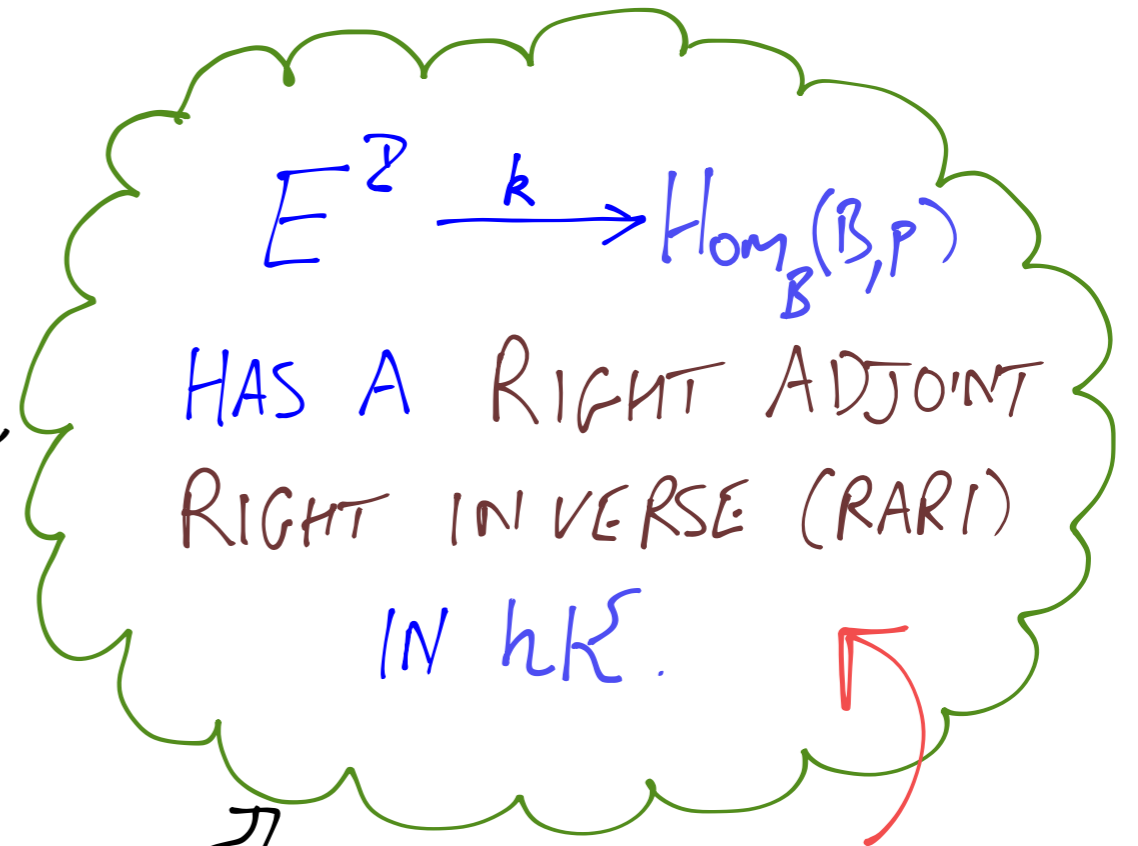 E² k → Hom_B(B,p)
HAS A RIGHT ADJOINT
RIGHT INVERSE (RARI)
IN hK.